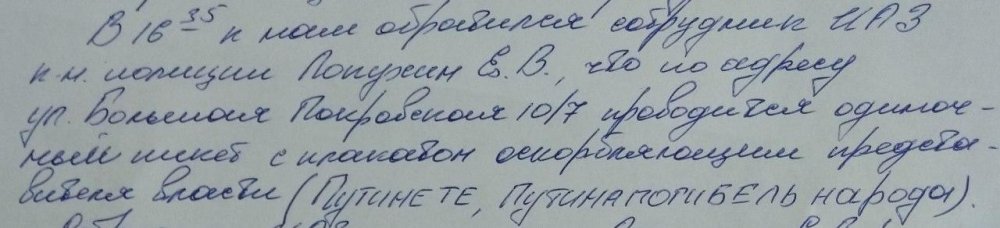 В 16 35 к нам обратился сотрудник ИАЗ
к-н. полиции Лопухин Е.В., что по адресу
ул. Большая Покровская 10/7 проводится одиноч-
ный пикет с плакатом оскорбляющим предста-
вителя власти (ПУТИНЕТЕ, ПУТИНАПОГИБЕЛЬ народа).